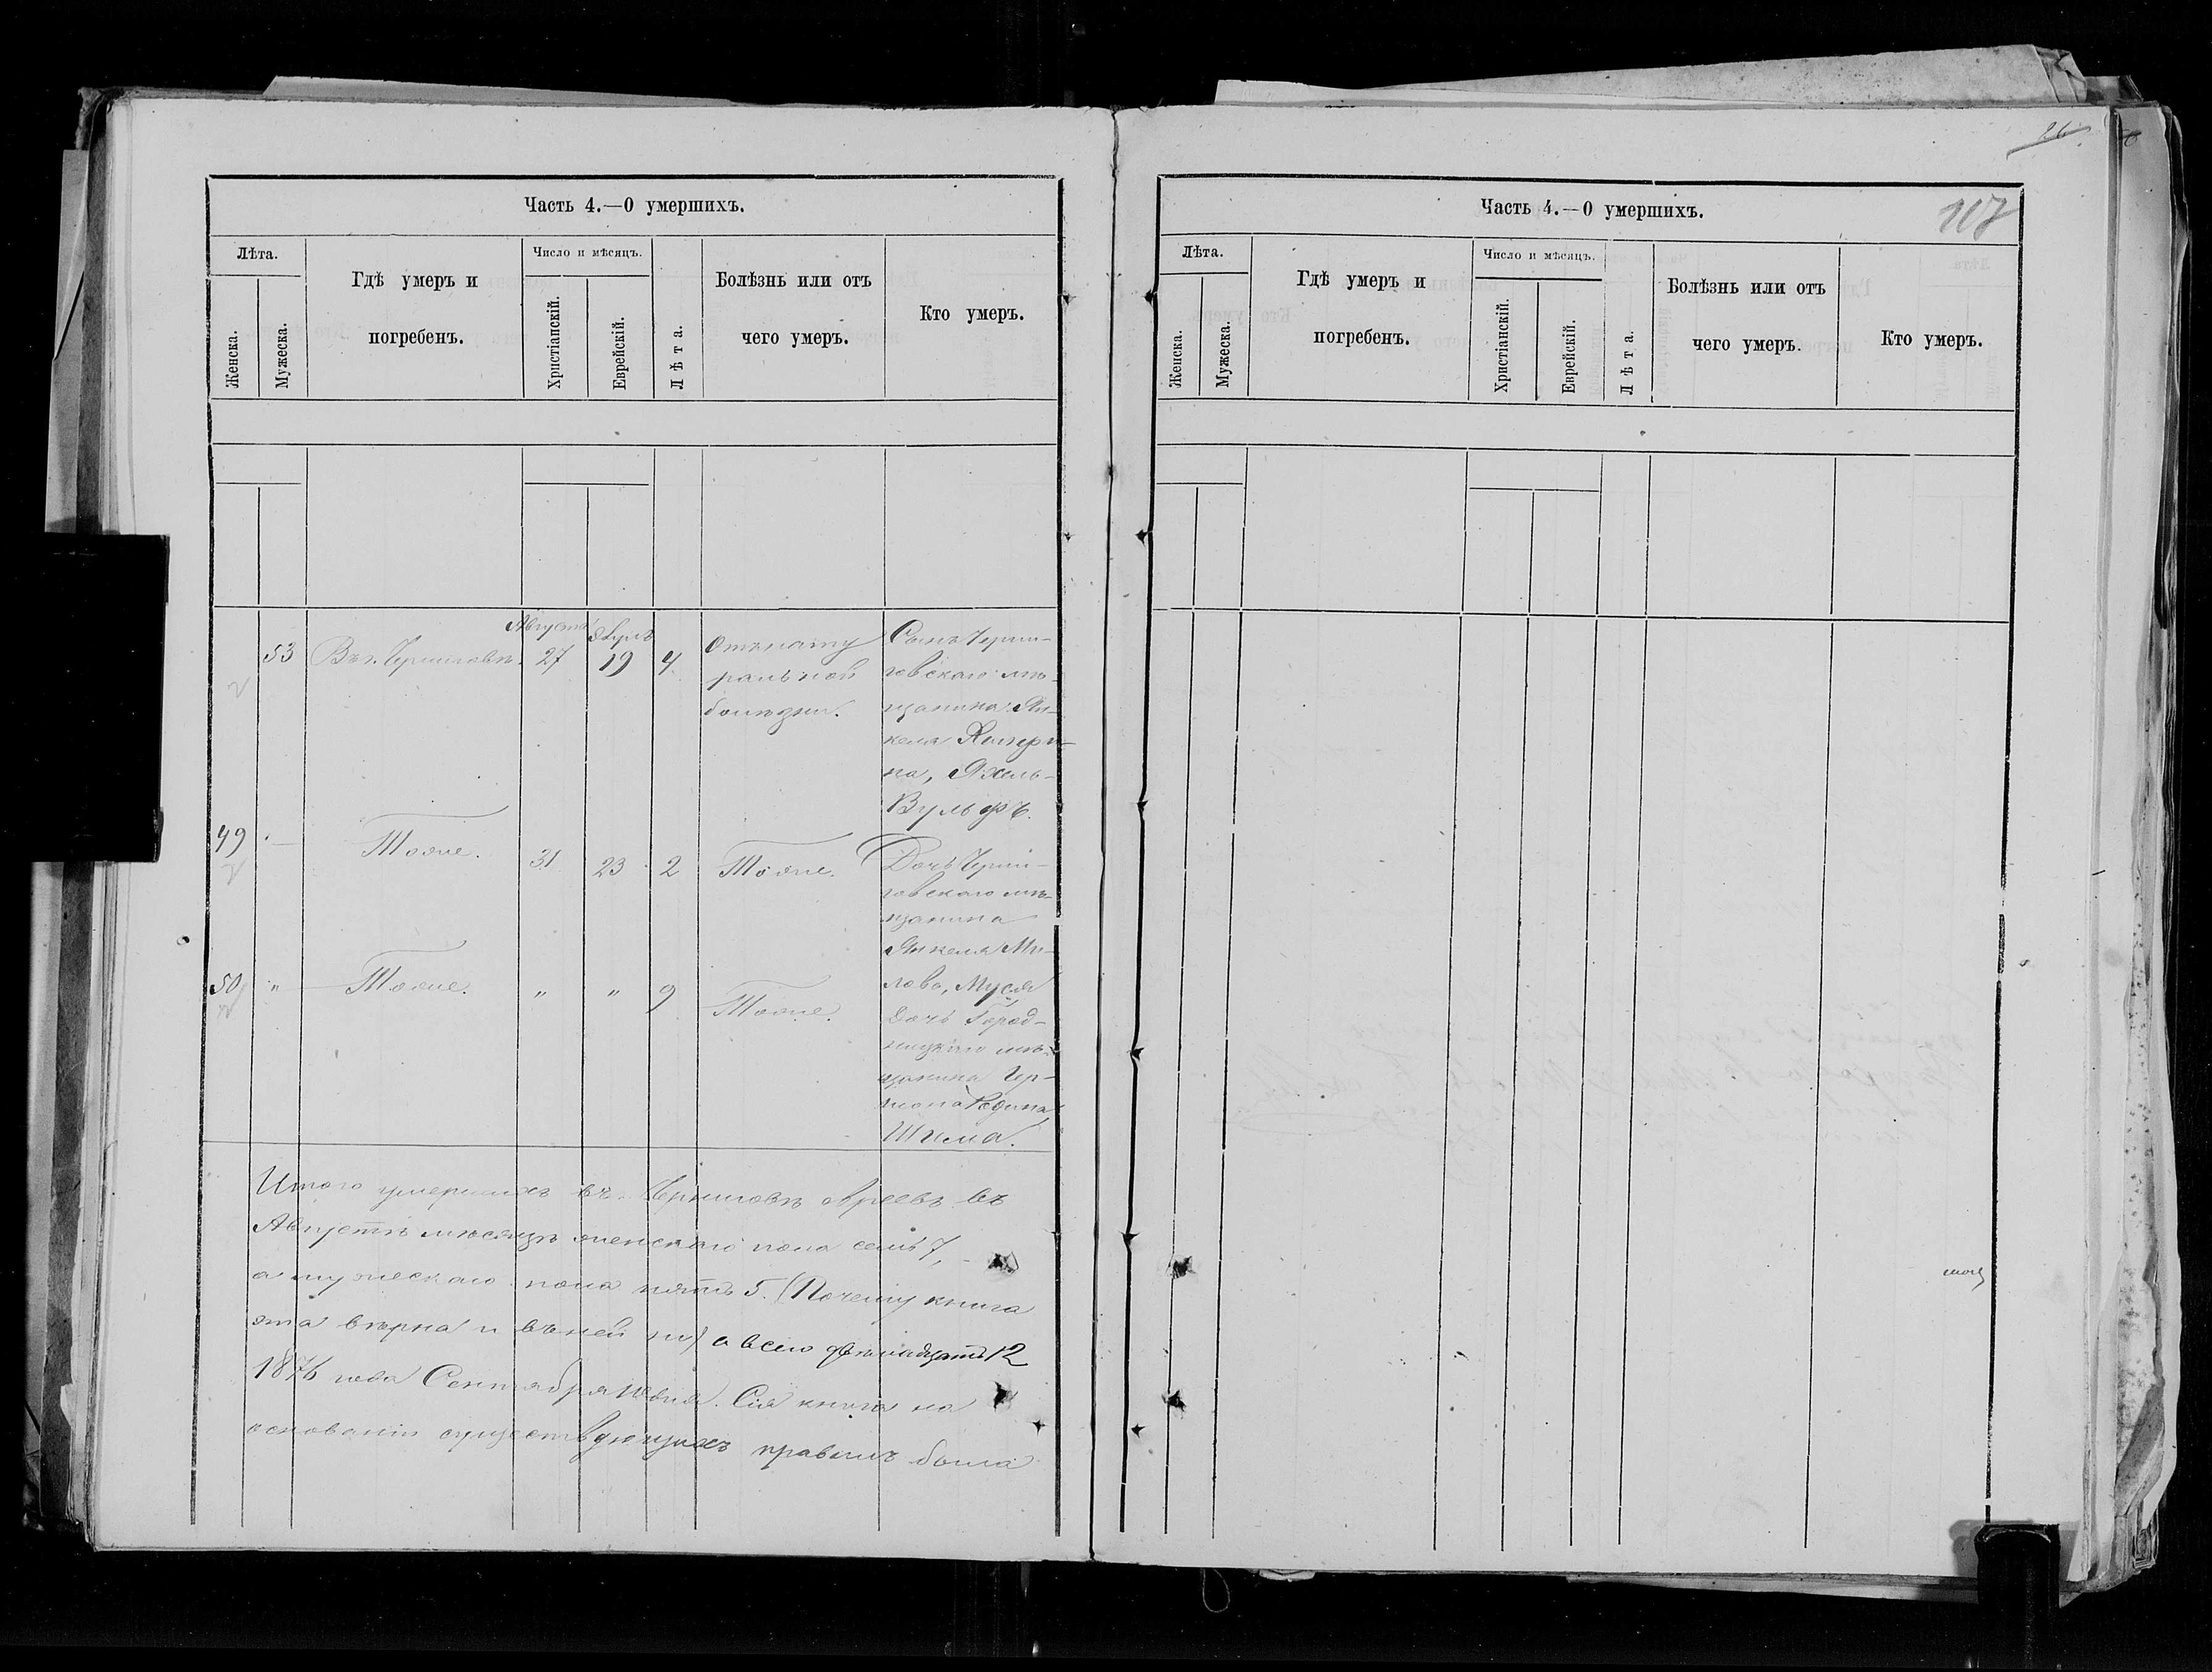 Часть 4.—О умершихъ.
Лѣта.
Женска.
Мужеска.
Гдѣ умеръ и
погребенъ.
Число и мѣсяцъ.
Христіанскій.
Еврейскій.
Лѣта.
Болѣзнь или отъ
чего умеръ.
Кто умеръ.
53
Въ г. Черниговѣ.
Августъ
27
Элулъ
19
4
Отъ нату
ральной
болѣзни.
Сынъ Черни-
говскаго мѣ-
щанина Ян-
келя
на,
Вульфъ.
49
Тоже.
31
23
2
Тоже.
Дочь Черни-
говскаго мѣ-
щанина
Янкеля Ми-
лова, Муся
50
"
Тоже.
"
"
9
Тоже.
Дочь Город-
ницкаго мѣ-
щанина

Шима.
Итого умершихъ въ г. Черниговѣ Евреевъ въ
Августѣ мѣсяцѣ женскаго пола семь 7,
а мужескаго пола пять 5. (Почему книга
эта вѣрна и въ ней) а всего двѣнадцать 12
1876 года Сентября дня. Сія книга на
основаніи существующихъ правилъ была
Часть 4.—О умершихъ.
26
107
Лѣта.
Женска.
Мужеска.
Гдѣ умеръ и
погребенъ.
Число и мѣсяцъ.
Христіанскій.
Еврейскій.
Лѣта.
Болѣзнь или отъ
чего умеръ.
Кто умеръ.